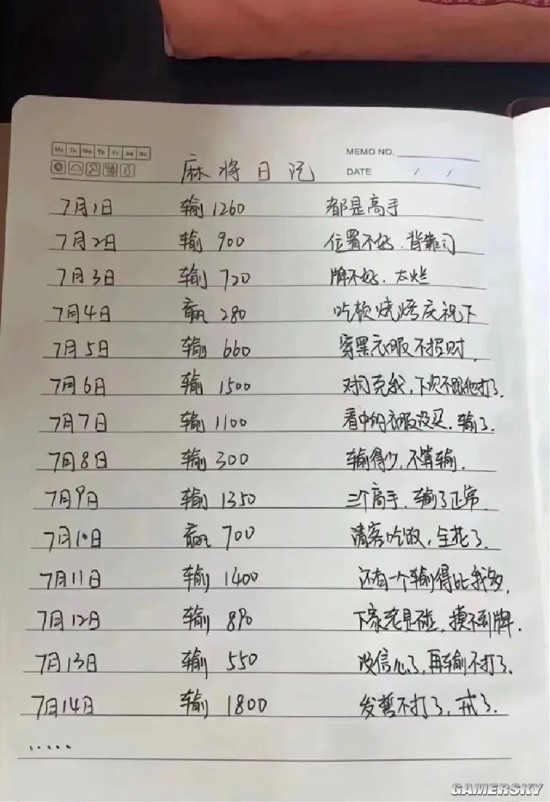 Mo Tu We Th Fr Sa Su
MEMO NO.
DATE / /
麻将日记
7月1日 输1260 都是高手
7月2日 输900 位置不好.背靠门
7月3日 输720 牌不好.太烂
7月4日 赢280 吃顿烧烤庆祝下
7月5日 输660 穿黑衣服不招财.
7月6日 输1500 对门克我,下次不跟他打了.
7月7日 输1100 看中的衣服没买.输了.
7月8日 输300 输得少,不算输.
7月9日 输1350 三个高手.输了正常
7月10日 赢700 请客吃饭,全花了.
7月11日 输1400 还有一个输得比我多,
7月12日 输890 下家老是碰,摸不到牌.
7月13日 输550 没信心了,再输不打了.
7月14日 输1800 发誓不打了,戒了.
.....
GAMERSKY